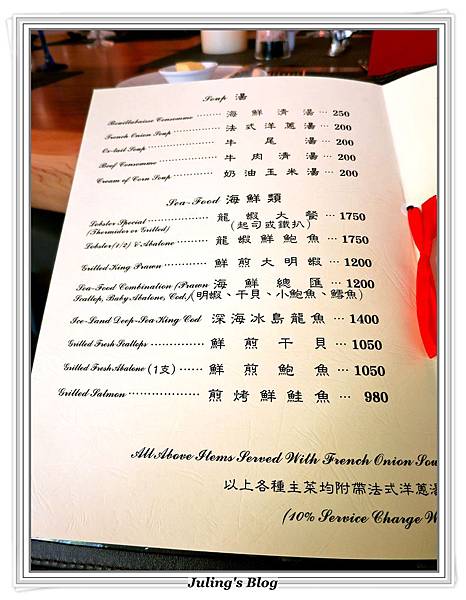 Soup 湯
Bouillabaisse Consomme ········ 海鮮清湯 ··· 250
French Onion Soup ············ 法式洋蔥湯 ··· 200
Ox-tail Soup ················ 牛尾湯 ··· 200
Beef Consomme ·············· 牛肉清湯 ··· 200
Cream of Corn Soup ·········· 奶油玉米湯 ··· 200
Sea-Food 海鮮類
Lobster Special ················ 龍蝦大餐 ··· 1750
(Thermidor or Grilled) (起司或鐵扒)
Lobster(1/2) & Abalone ········ 龍蝦鮮鮑魚 ··· 1750
Grilled King Prawn ············ 鮮煎大明蝦 ··· 1200
Sea-Food Combination (Prawn 海鮮總匯 ··· 1200
Scallop, Baby Abalone, Cod) (明蝦、干貝、小鮑魚、鱈魚)
Ice-Land Deep-Sea King Cod 深海冰島龍魚 ··· 1400
Grilled Fresh Scallops ············ 鮮煎干貝 ··· 1050
Grilled Fresh Abalone (1支) ······ 鮮煎鮑魚 ··· 1050
Grilled Salmon ·················· 煎烤鮮鮭魚 ··· 980
All Above Items Served With French Onion Sou
以上各種主菜均附帶法式洋蔥湯
(10% Service Charge W
Juling's Blog